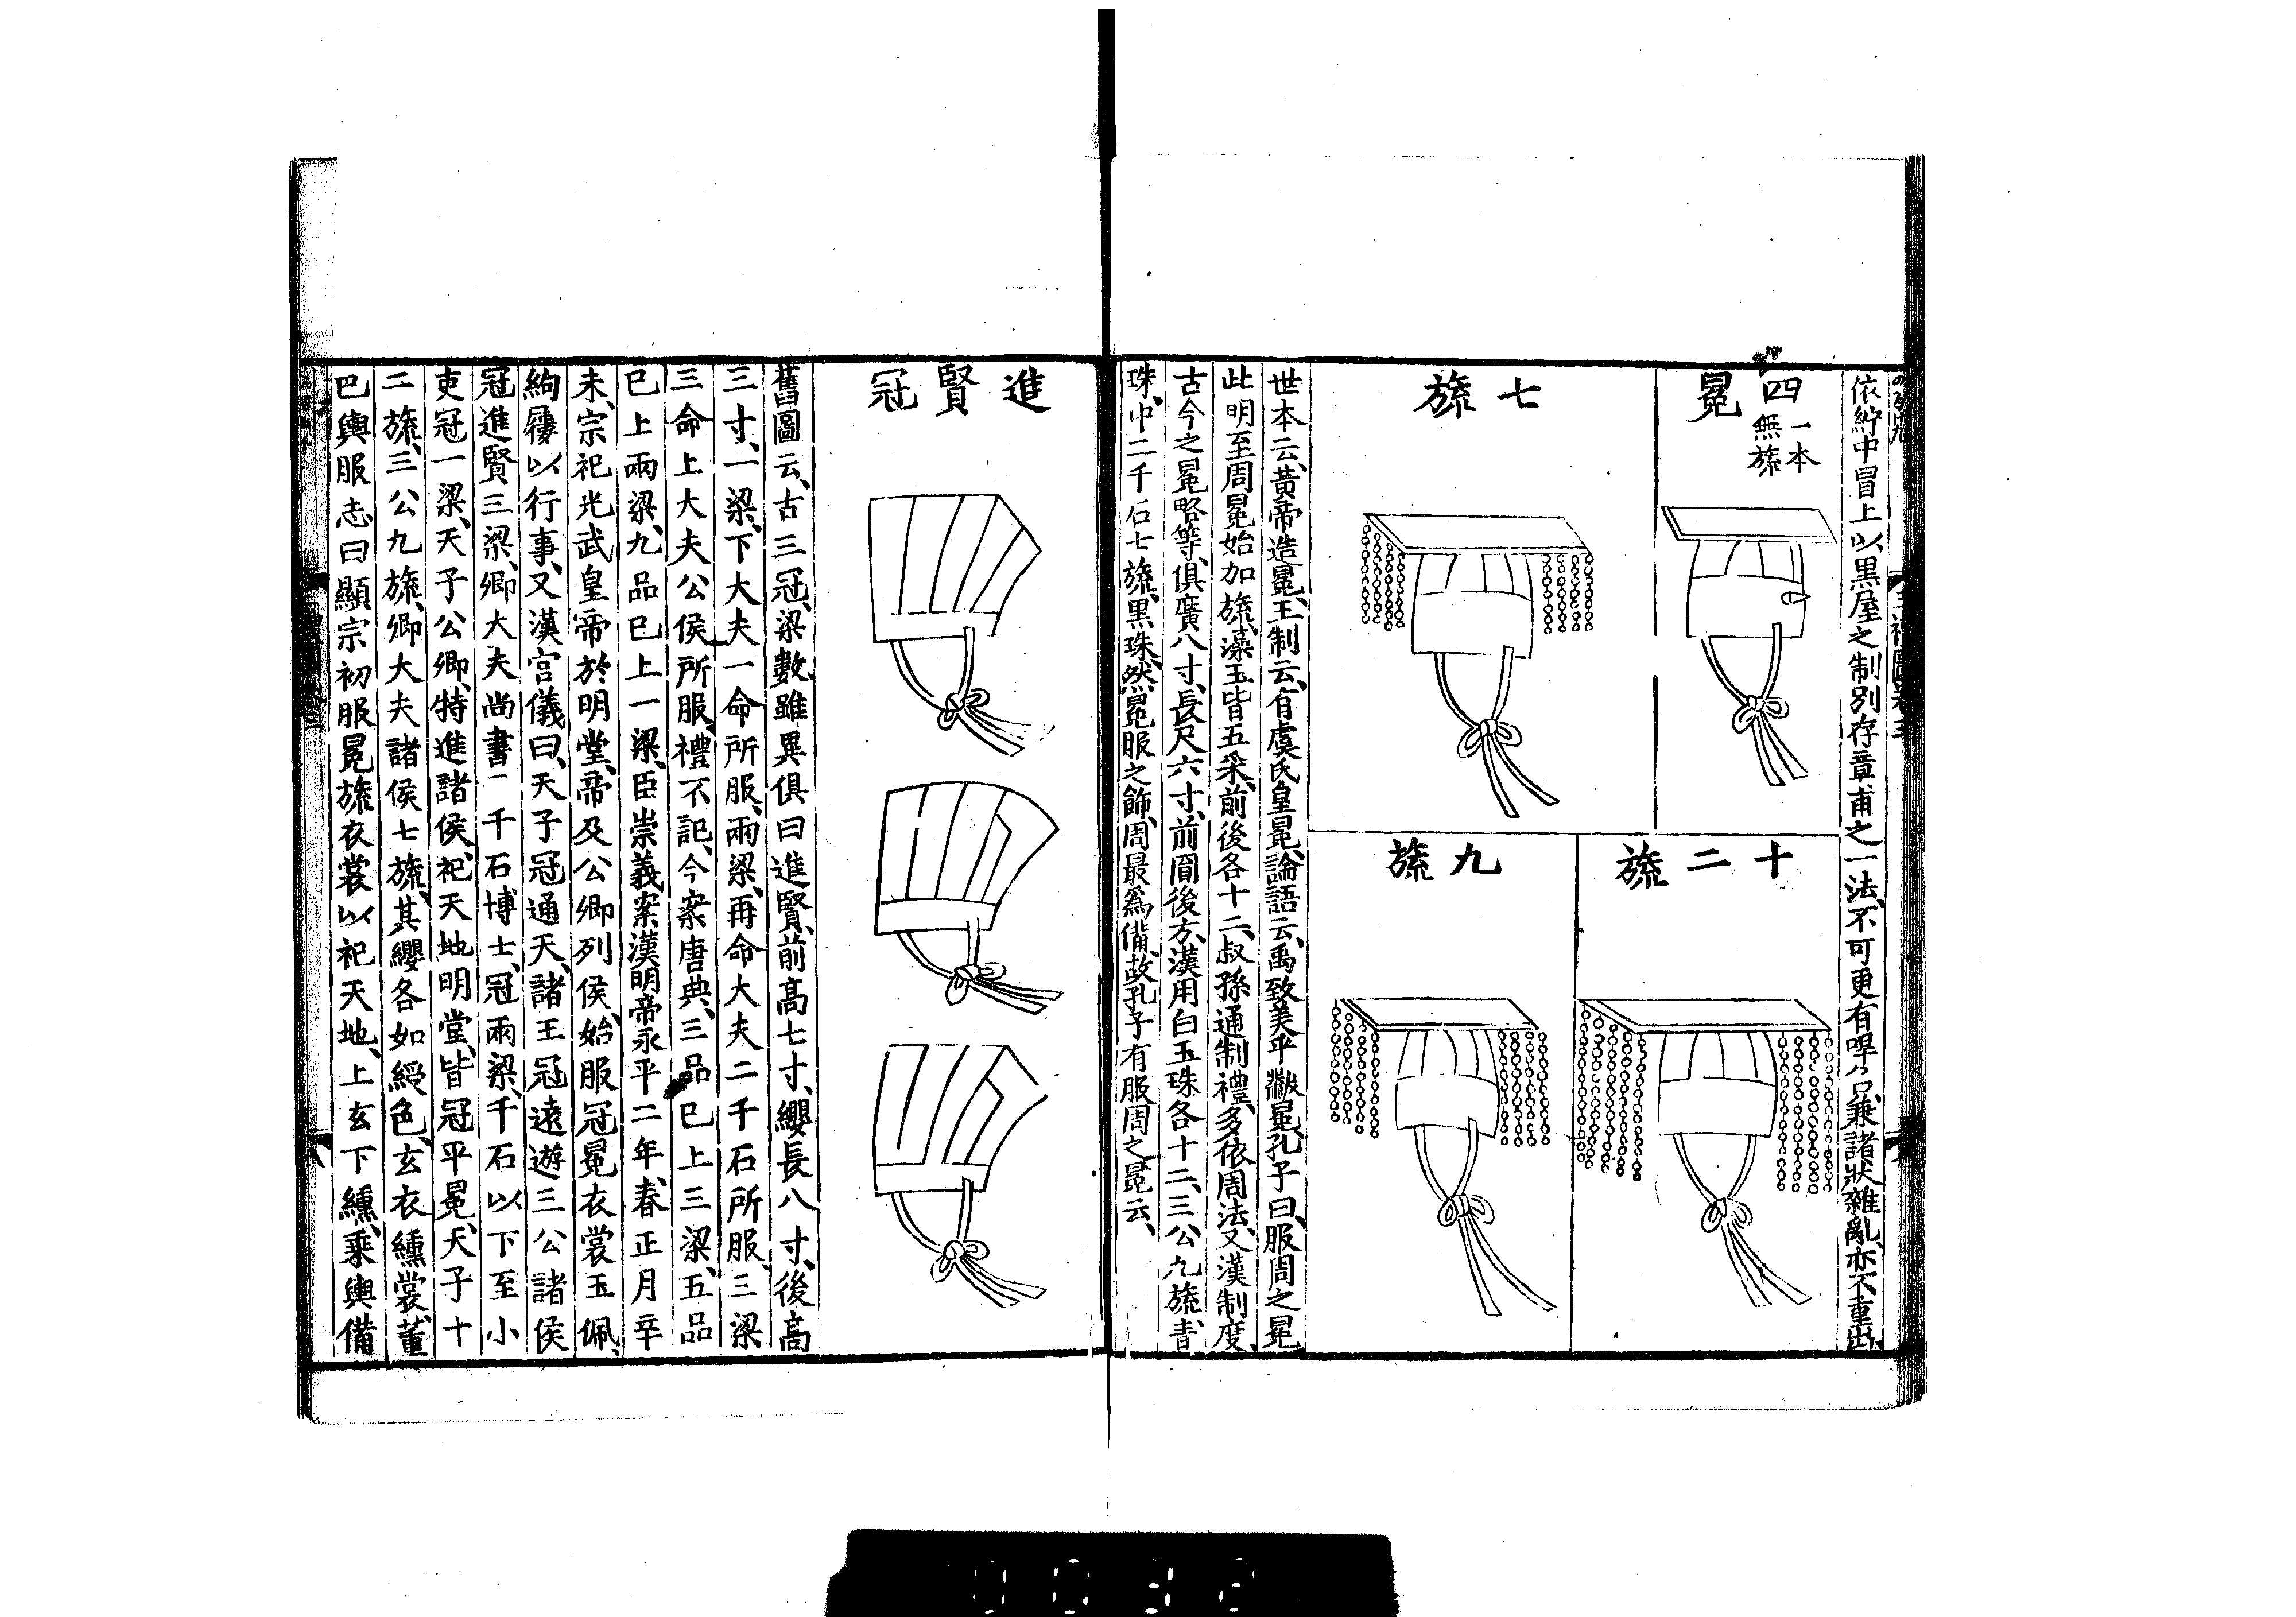 依紵中冒上以黑屋之制別存章甫之一法不可更有㖸八只兼諸狀雜亂亦不重出
四冕
一本無旒
七旒
十二旒
九旒
世本云黃帝造冕王制云有虞氏皇冕論語云禹致美乎黻冕孔子曰服周之冕
此明至周冕始加旒藻玉皆五采前後各十二叔孫通制禮多依周法又漢制度
古今之冕略等俱廣八寸長尺六寸前圓後方漢用白玉珠各十二三公九旒青
珠中二千石七旒黑珠然冕服之飾周最爲備故孔子有服周之冕云
進賢冠
舊圖云古三冠梁數雖異俱曰進賢前高七寸纓長八寸後高
三寸一梁下大夫一命所服兩梁再命大夫二千石所服三梁
三命上大夫公侯所服禮不記今案唐典三品已上三梁五品
已上兩梁九品已上一梁臣崇義案漢明帝永平二年春正月辛
未宗祀光武皇帝於明堂帝及公卿列侯始服冠冕衣裳玉佩
絇屨以行事又漢官儀曰天子冠通天諸王冠遠遊三公諸侯
冠進賢三梁卿大夫尚書二千石博士冠兩梁千石以下至小
吏冠一梁天子公卿特進諸侯祀天地明堂皆冠平冕天子十
二旒三公九旒卿大夫諸侯七旒其纓各如綬色玄衣纁裳董
巴輿服志曰顯宗初服冕旒衣裳以祀天地上玄下纁乘輿備